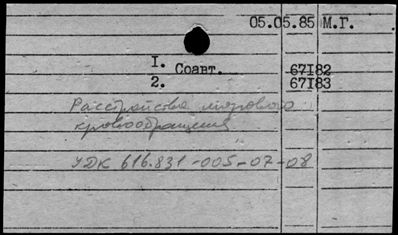 05.05.85 М.Г.
I. Соавт. 67I82
2. 67I83
Расстройства мозгового
кровообращения
УДК 616.831-005-07-08